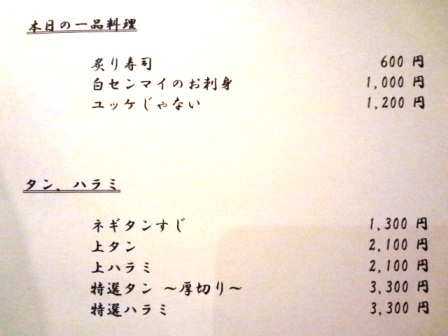 本日の一品料理
炙り寿司 600 円
白センマイのお刺身 1,000 円
ユッケじゃない 1,200 円
タン、ハラミ
ネギタンすじ 1,300 円
上タン 2,100 円
上ハラミ 2,100 円
特選タン ～厚切り～ 3,300 円
特選ハラミ 3,300 円